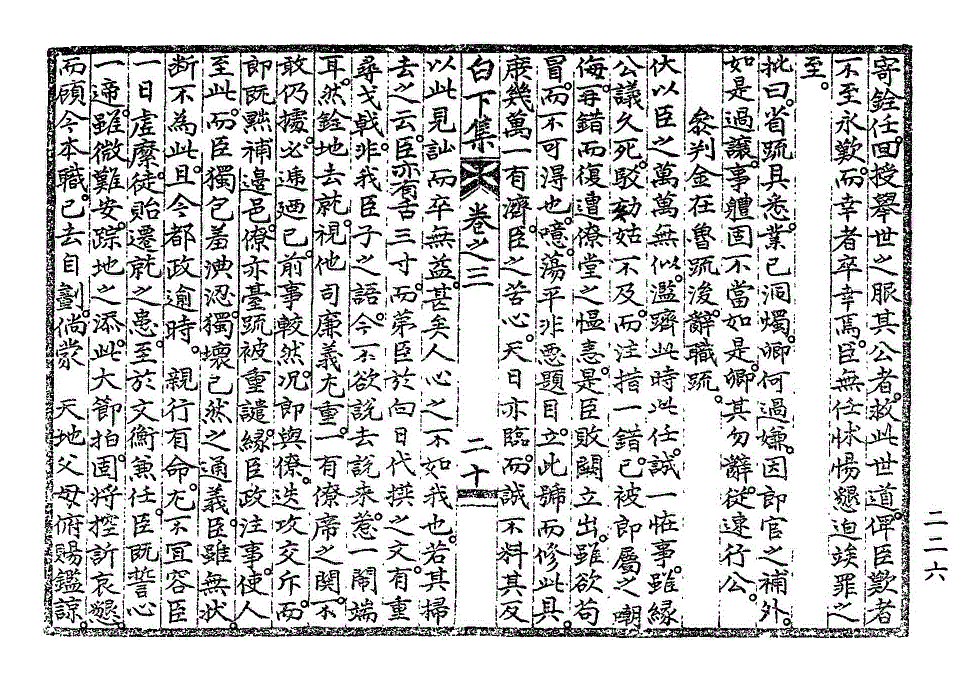 寄銓任回授擧世之服其公者救此世道俾臣歎者
不至永歎而幸者卒幸焉臣無任怵惕懇迫竢罪之
至
批曰省䟽具悉業已洞燭卿何過嫌因郞官之補外
如是過讓事體固不當如是卿其勿辭從速行公
叅判金在魯䟽後辭職䟽
伏以臣之萬萬無似濫躋此時此任誠一恠事雖緣
公議久死駁劾姑不及而注措一錯已被郞屬之嘲
侮再錯而復遭僚堂之慍恚是臣敗闕立出雖欲苟
冒而不可淂也噫蕩平非惡題目立此號而修此具
庻幾萬一有濟臣之苦心天日亦臨而誠不料其反
白下集 卷之三 二十
以此見訕而卒無益甚矣人心之不如我也若其掃
去之云臣亦有舌三寸而第臣於向日代撰之文有重
尋戈戟非我臣子之語今不欲說去說来惹一鬧端
耳然銓地去就視他司廉義尤重一有僚席之閧不
敢仍據必遞廼已前事較然况郞與僚迭攻交斥而
郞旣黜補邊邑僚亦臺䟽被重譴緣臣政注事使人
至此而臣獨包羞淟涊獨壞已然之通義臣雖無狀
断不為此且今都政逾時 親行有命尤不宜容臣
一日虛縻徒貽遷就之患至於文衡兼任臣旣誓心
一遞雖微難安踪地之添此大節拍固將控訴哀懇
而顧今本職已去自劃倘蒙 天地父母俯賜鑑諒
二二六